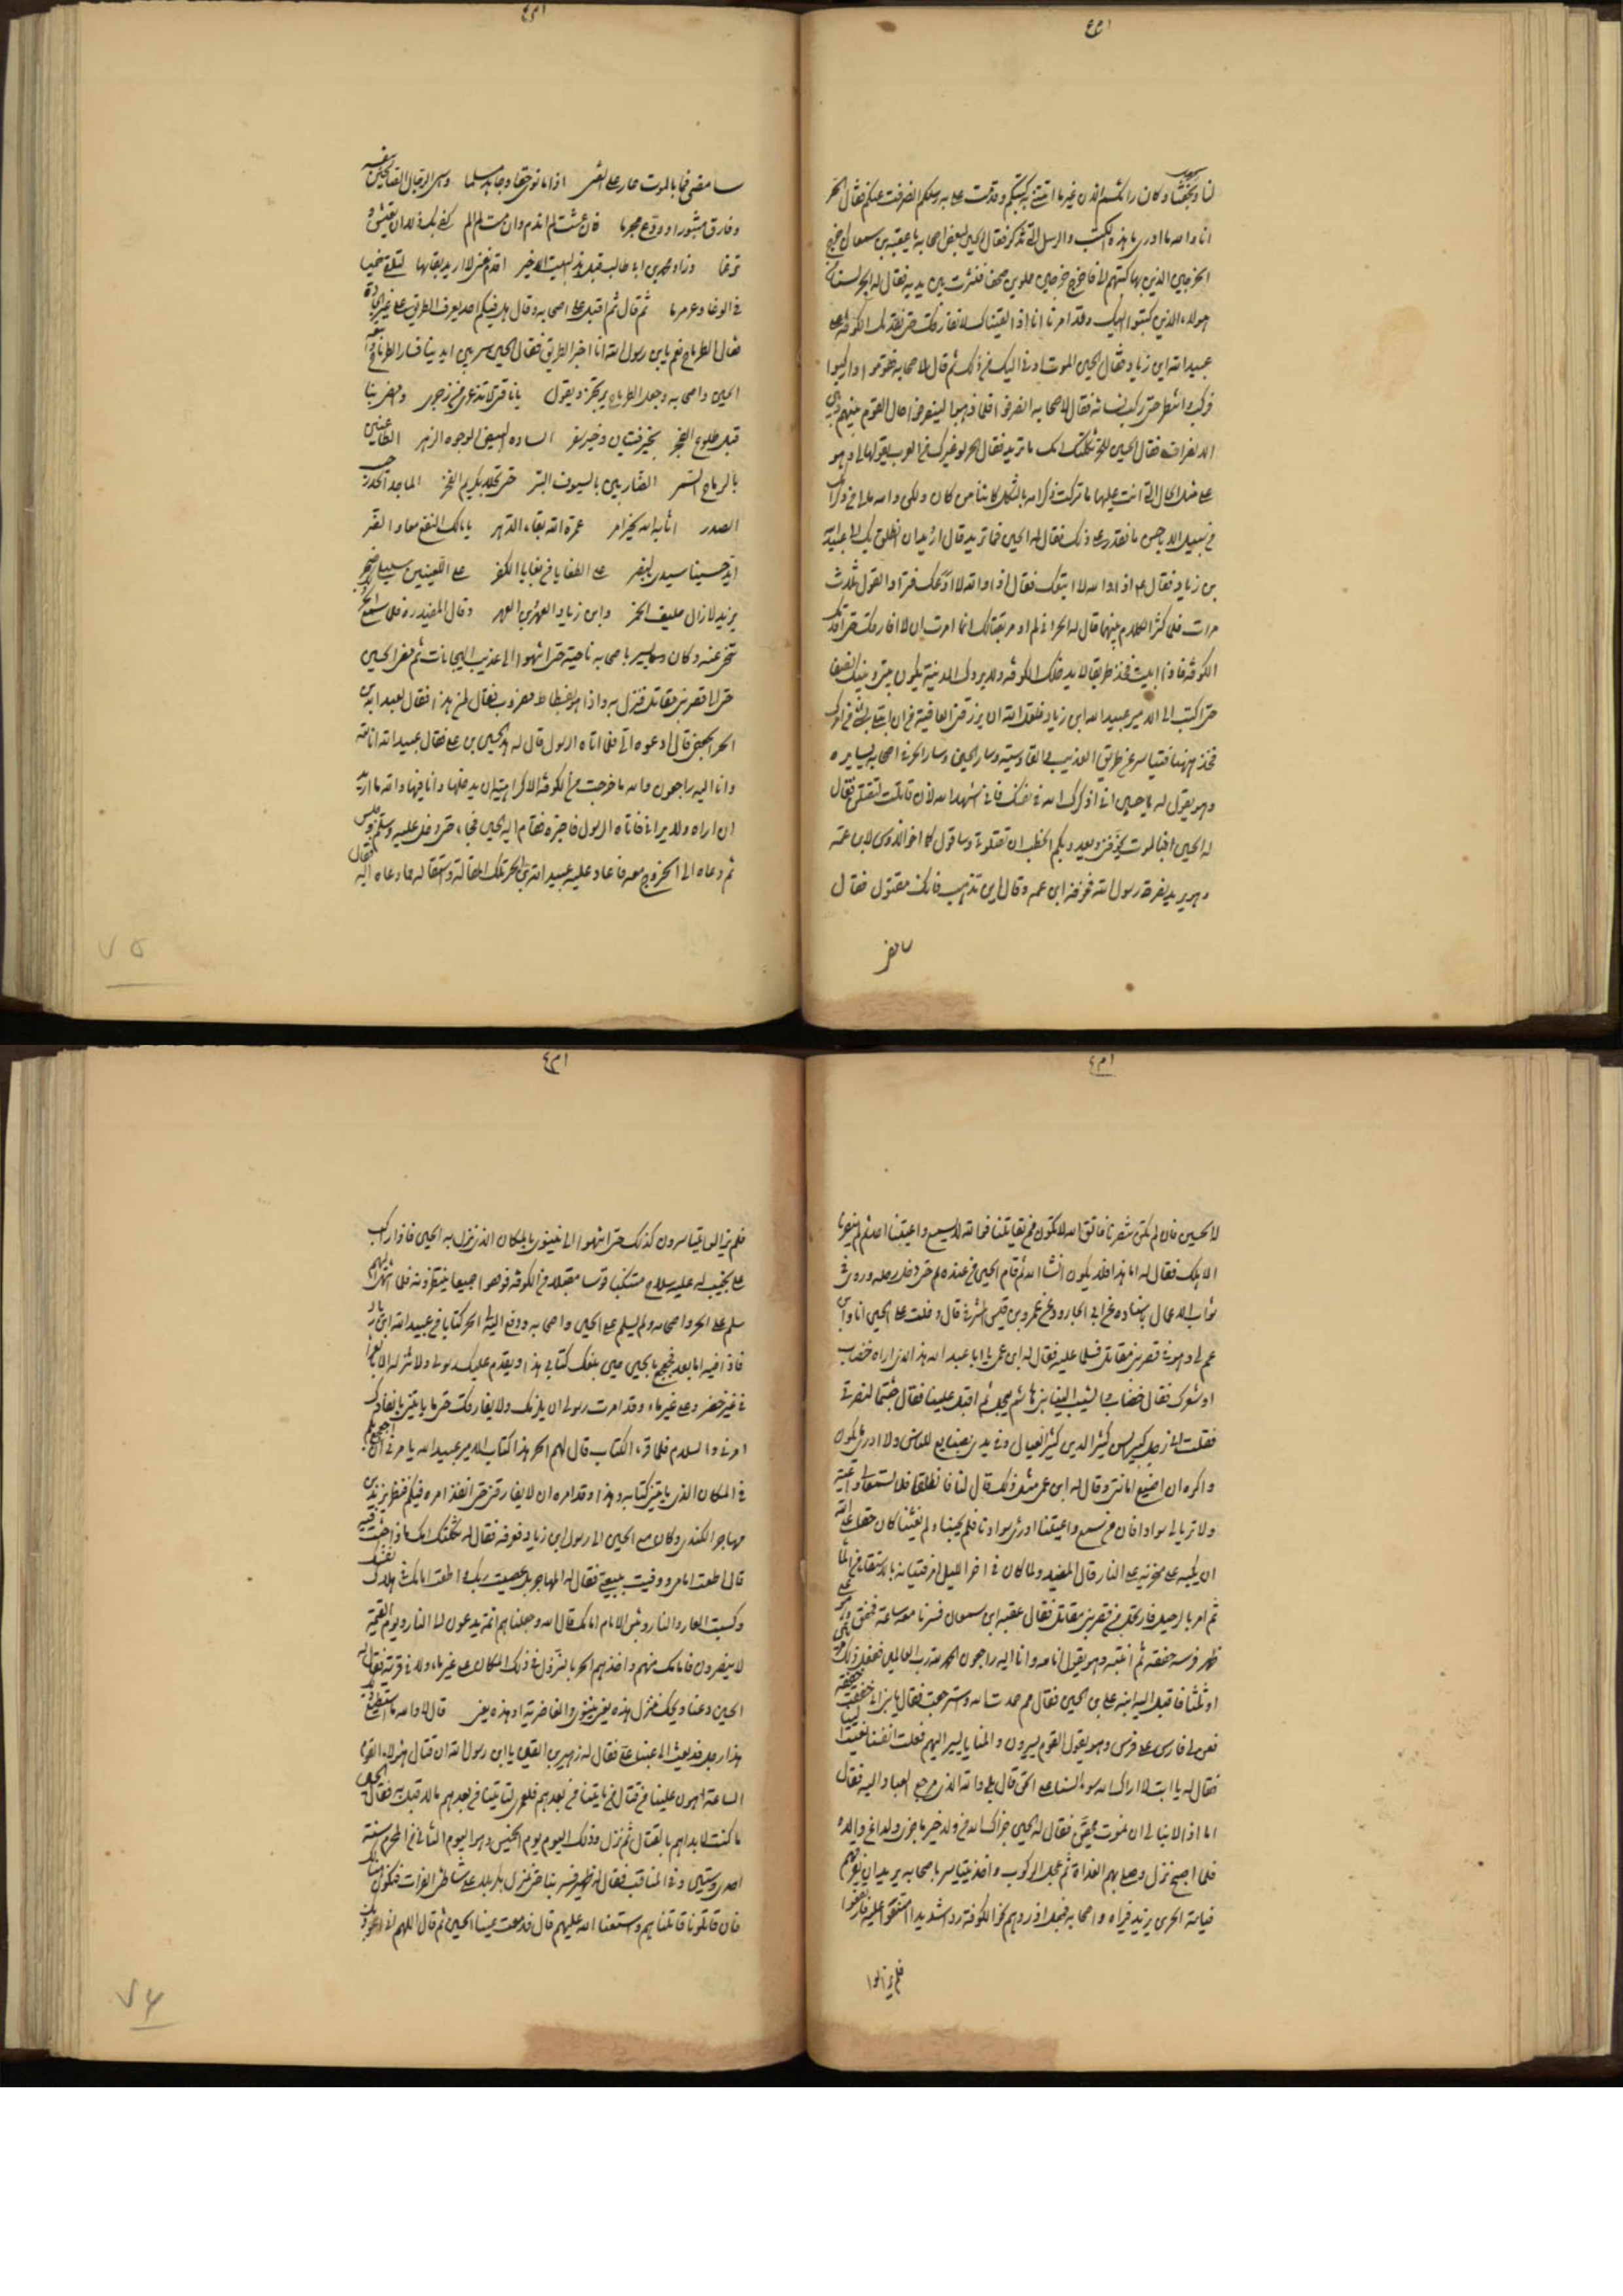 لنا وبحقنا وكان رايكم الان غير ما اتتني به كتبكم وقدمت علي به رسلكم انصرفت عنكم فقال الحر
انا والله ما ادري ما هذه الكتب والرسل التي تذكر فقال الحسين لبعض اصحابه يا عقبة بن سمعان اخرج
الخرجين الذين بهما كتبهم الي فاخرج خرجين مملوين صحفا فنثرت بين يديه فقال له الحر لسنا من
هولاء الذين كتبوا اليك وقد امرنا انا اذا لقيناك لا نفارقك حتى نقدمك الكوفة على
عبيد الله ابن زياد فقال الحسين الموت ادنى اليك من ذلك ثم قال لاصحابه فقوموا واركبوا
فركبوا وانتظر حتى ركب نسائه فقال لاصحابه انصرفوا فلما ذهبوا لينصرفوا حال القوم بينهم وبين
الانصراف فقال الحسين للحر ثكلتك امك ما تريد فقال الحر لو غيرك من العرب يقولها لي وهو
على مثل الحال التي انت عليها ما تركت ذكر امه بالثكل كائنا من كان ولكن والله مالي من ذكر امك
من سبيل الا باحسن ما نقدر على ذلك فقال له الحسين فما تريد قال اريد ان انطلق بك الى عبيد الله
بن زياد فقال اذا والله لا اتبعك فقال اذا والله لا ادعك فترادا القول ثلاث
مرات فلما كثر الكلام بينهما قال له الحر اني لم اومر بقتالك انما امرت ان لا افارقك حتى اقدمك
الكوفة فاذا ابيت فخذ طريقا لا يدخلك الكوفة ولا يردك الى المدينة يكون بيني وبينك نصفا
حتى اكتب الى الامير عبيد الله ابن زياد فلعل الله ان يرزقني العافية من ان ابتلي بشيء من امرك
فخذ ههنا فتياسر عن طريق العذيب والقادسية وسار الحسين وسار الحر في اصحابه يسايره
وهو يقول له يا حسين اني اذكرك الله في نفسك فاني اشهد لله لان قاتلت لتقتلن فقال
له الحسين افبالموت تخوفني وهل يعدو بكم الخطب ان تقتلوني وساقول كما قال اخو الاوس لابن عمه
وهو يريد نصرة رسول الله فخوفه ابن عمه وقال اين تذهب فانك مقتول فقال
سامضي فما بالموت عار على الفتى اذا ما نوى حقا وجاهد مسلما وواسى الرجال الصالحين بنفسه
وفارق مثبورا وودع مجرما فان عشت لم اندم وان مت لم الم كفى بك ذلا ان تعيش و
ترغما وزاد محمد بن ابي طالب قبل هذا البيت الاخير اقدم نفسي لا اريد بقائها لتلقى خميسا
في الوغا وعرمرما ثم قال ثم اقبل على اصحابه وقال هل فيكم احد يعرف الطريق على غير الجادة
فقال الطرماح نعم يا بن رسول الله انا اخبر الطريق فقال الحسين سر بين ايدينا فسار الطرماح واتبعه
الحسين واصحابه وجعل الطرماح يرتجز ويقول يا ناقتي لا تذعري من زجري وامضي بنا
قبل طلوع الفجر بخير فتيان وخير سفر السادة البيض الوجوه الزهر الطاعنين
بالرماح السمر الضاربين بالسيوف البتر حتى تحلي بكريم الفخر الماجد الجد رحيب
الصدر اثابه الله لخير امر عمره الله بقاء الدهر يا مالك النفع معا والضر
ايد حسينا سيدي بالنصر على الطغاة من بقايا الكفر على اللعينين سليلي صخر
يزيد لا زال حليف الخمر وابن زياد العهر بن العهر وقال المفيد ره فلما سمع الحر
تنحى عنه وكان يسير باصحابه ناحية حتى انتهوا الى عذيب الهجانات ثم مضى الحسين
حتى اتى قصر بني مقاتل فنزل به واذا هو بفسطاط مضروب فقال لمن هذا فقال لعبيد الله بن
الحر الجعفي قال ادعوه الي فلما اتاه الرسول قال له هذا الحسين بن علي فقال عبيد الله انا لله
وانا اليه راجعون والله ما خرجت من الكوفة الا كراهية ان يدخلها وانا فيها والله ما اريد
ان اراه ولا يراني فاتاه الرسول فاخبره فقام اليه الحسين فجاء حتى دخل عليه وسلم وجلس
ثم دعاه الى الخروج معه فاعاد عليه عبيد الله بن الحر تلك المقالة واستقاله مما دعاه اليه فقال
سامضي
له الحسين فان لم تكن تنصرنا فاتق الله لا تكون ممن يقاتلنا فوالله لا يسمع واعيتنا احد ثم لم ينصرنا
الا هلك فقال له اما هذا فلا يكون انشاالله ثم قام الحسين من عنده حتى دخل رحله وروى في
ثواب الاعمال باسناده عن ابي الجارود عن عمرو بن قيس المشرقي قال دخلت على الحسين انا وابن
عم لي وهو في قصر بني مقاتل فسلمنا عليه فقال له ابن عمي يا ابا عبد الله هذا الذي اراه خضاب
او شعرك فقال خضاب والشيب الينا بني هاشم يعجل ثم اقبل علينا فقال جئتما لنصرتي
فقلت اني رجل كبير السن كثير الدين كثير العيال وفي يدي بضايع للناس ولا ادري ما يكون
واكره ان اضيع امانتي وقال له ابن عمي مثل ذلك قال لنا فانطلقا فلا تسمعا لي واعية
ولا تريا لي سوادا فانه من سمع واعيتنا او رئ سوادنا فلم يجبنا ولم يغثنا كان حقا على الله
ان يكبه على منخريه في النار قال المفيد ولما كان في اخر الليل امر فتيانه بالاستقاء من الماء
ثم امر بالرحيل فارتحل من قصر بني مقاتل فقال عقبة ابن سمعان فسرنا معه ساعة فخفق وهو على
ظهر فرسه خفقة ثم انتبه وهو يقول انا لله وانا اليه راجعون والحمد لله رب العالمين ففعل ذلك مرتين
او ثلثا فاقبل اليه ابنه علي بن الحسين فقال مم حمدت الله واسترجعت فقال يا بني اني خفقت خفقة
فعن لي فارس على فرس وهو يقول القوم يسيرون والمنايا تسير اليهم فعلمت انها انفسنا نعيت الينا
فقال له يا ابت لا اراك الله سوء السنا على الحق قال بلى والله الذي مرجع العباد اليه فقال
اما اذا لا نبالي ان نموت محقين فقال له الحسين جزاك الله من ولد خير ما جزى ولدا عن والده
فلما اصبح نزل وصلى بهم الغداة ثم عجل الركوب واخذ يتياسر باصحابه يريد ان يفرقهم
فياتيه الحر بن يزيد فيرده واصحابه فجعل اذا ردهم نحو الكوفة ردا شديدا امتنعوا عليه فارتفعوا
فلم يزالوا
فلم يزالوا يتياسرون كذلك حتى انتهوا الى نينوى بالمكان الذي نزل به الحسين فاذا راكب
على نجيب له عليه سلاح متنكبا قوسا مقبلا من الكوفة فوقفوا جميعا ينتظرونه فلما انتهى اليهم
سلم على الحر واصحابه ولم يسلم على الحسين واصحابه ودفع الى الحر كتابا من عبيد الله ابن زياد
فاذا فيه اما بعد فجعجع بالحسين حين بلغك كتابي هذا ويقدم عليك رسولي ولا تنزله الا بالعراء
في غير خضر وعلى غير ماء وقد امرت رسولي ان يلزمك ولا يفارقك حتى ياتيني بانفاذك
امري والسلام فلما قرء الكتاب قال لهم الحر هذا كتاب الامير عبيد الله يامرني ان اجعجع بكم
في المكان الذي ياتيني كتابه وهذا رسوله وقد امره ان لا يفارقني حتى انفذ امره فيكم فنظر يزيد بن
مهاجر الكندي وكان مع الحسين الى رسول ابن زياد فعرفه فقال له ثكلتك امك ماذا جئت فيه
قال اطعت امامي ووفيت ببيعتي فقال له المهاجر بل عصيت ربك واطعت امامك في هلاك نفسك
وكسبت العار والنار وبئس الامام امامك قال الله وجعلناهم ائمة يدعون الى النار ويوم القيمة
لا ينصرون فامامك منهم واخذهم الحر بالنزول في ذلك المكان على غير ماء ولا في قرية فقال له
الحسين دعنا ويحك ننزل هذه يعني نينوى والغاضرية او هذه يعني قال لا والله ما استطيع ذلك
هذا رجل قد بعث الي عينا علي فقال له زهير بن القين يا ابن رسول الله ان قتال هولاء القوم
الساعة اهون علينا من قتال من ياتينا من بعدهم فلعمري لياتينا من بعدهم ما لا قبل به فقال الحسين
ما كنت لابداهم بالقتال ثم نزل وذلك اليوم يوم الخميس وهو اليوم الثاني من المحرم سنة
احدى وستين وفي المناقب فقال له زهير فسر بنا حتى ننزل بكربلا على شاطئ الفرات فنكون هناك
فان قاتلونا قاتلناهم واستعنا الله عليهم قال فدمعت عينا الحسين ثم قال اللهم اني اعوذ بك